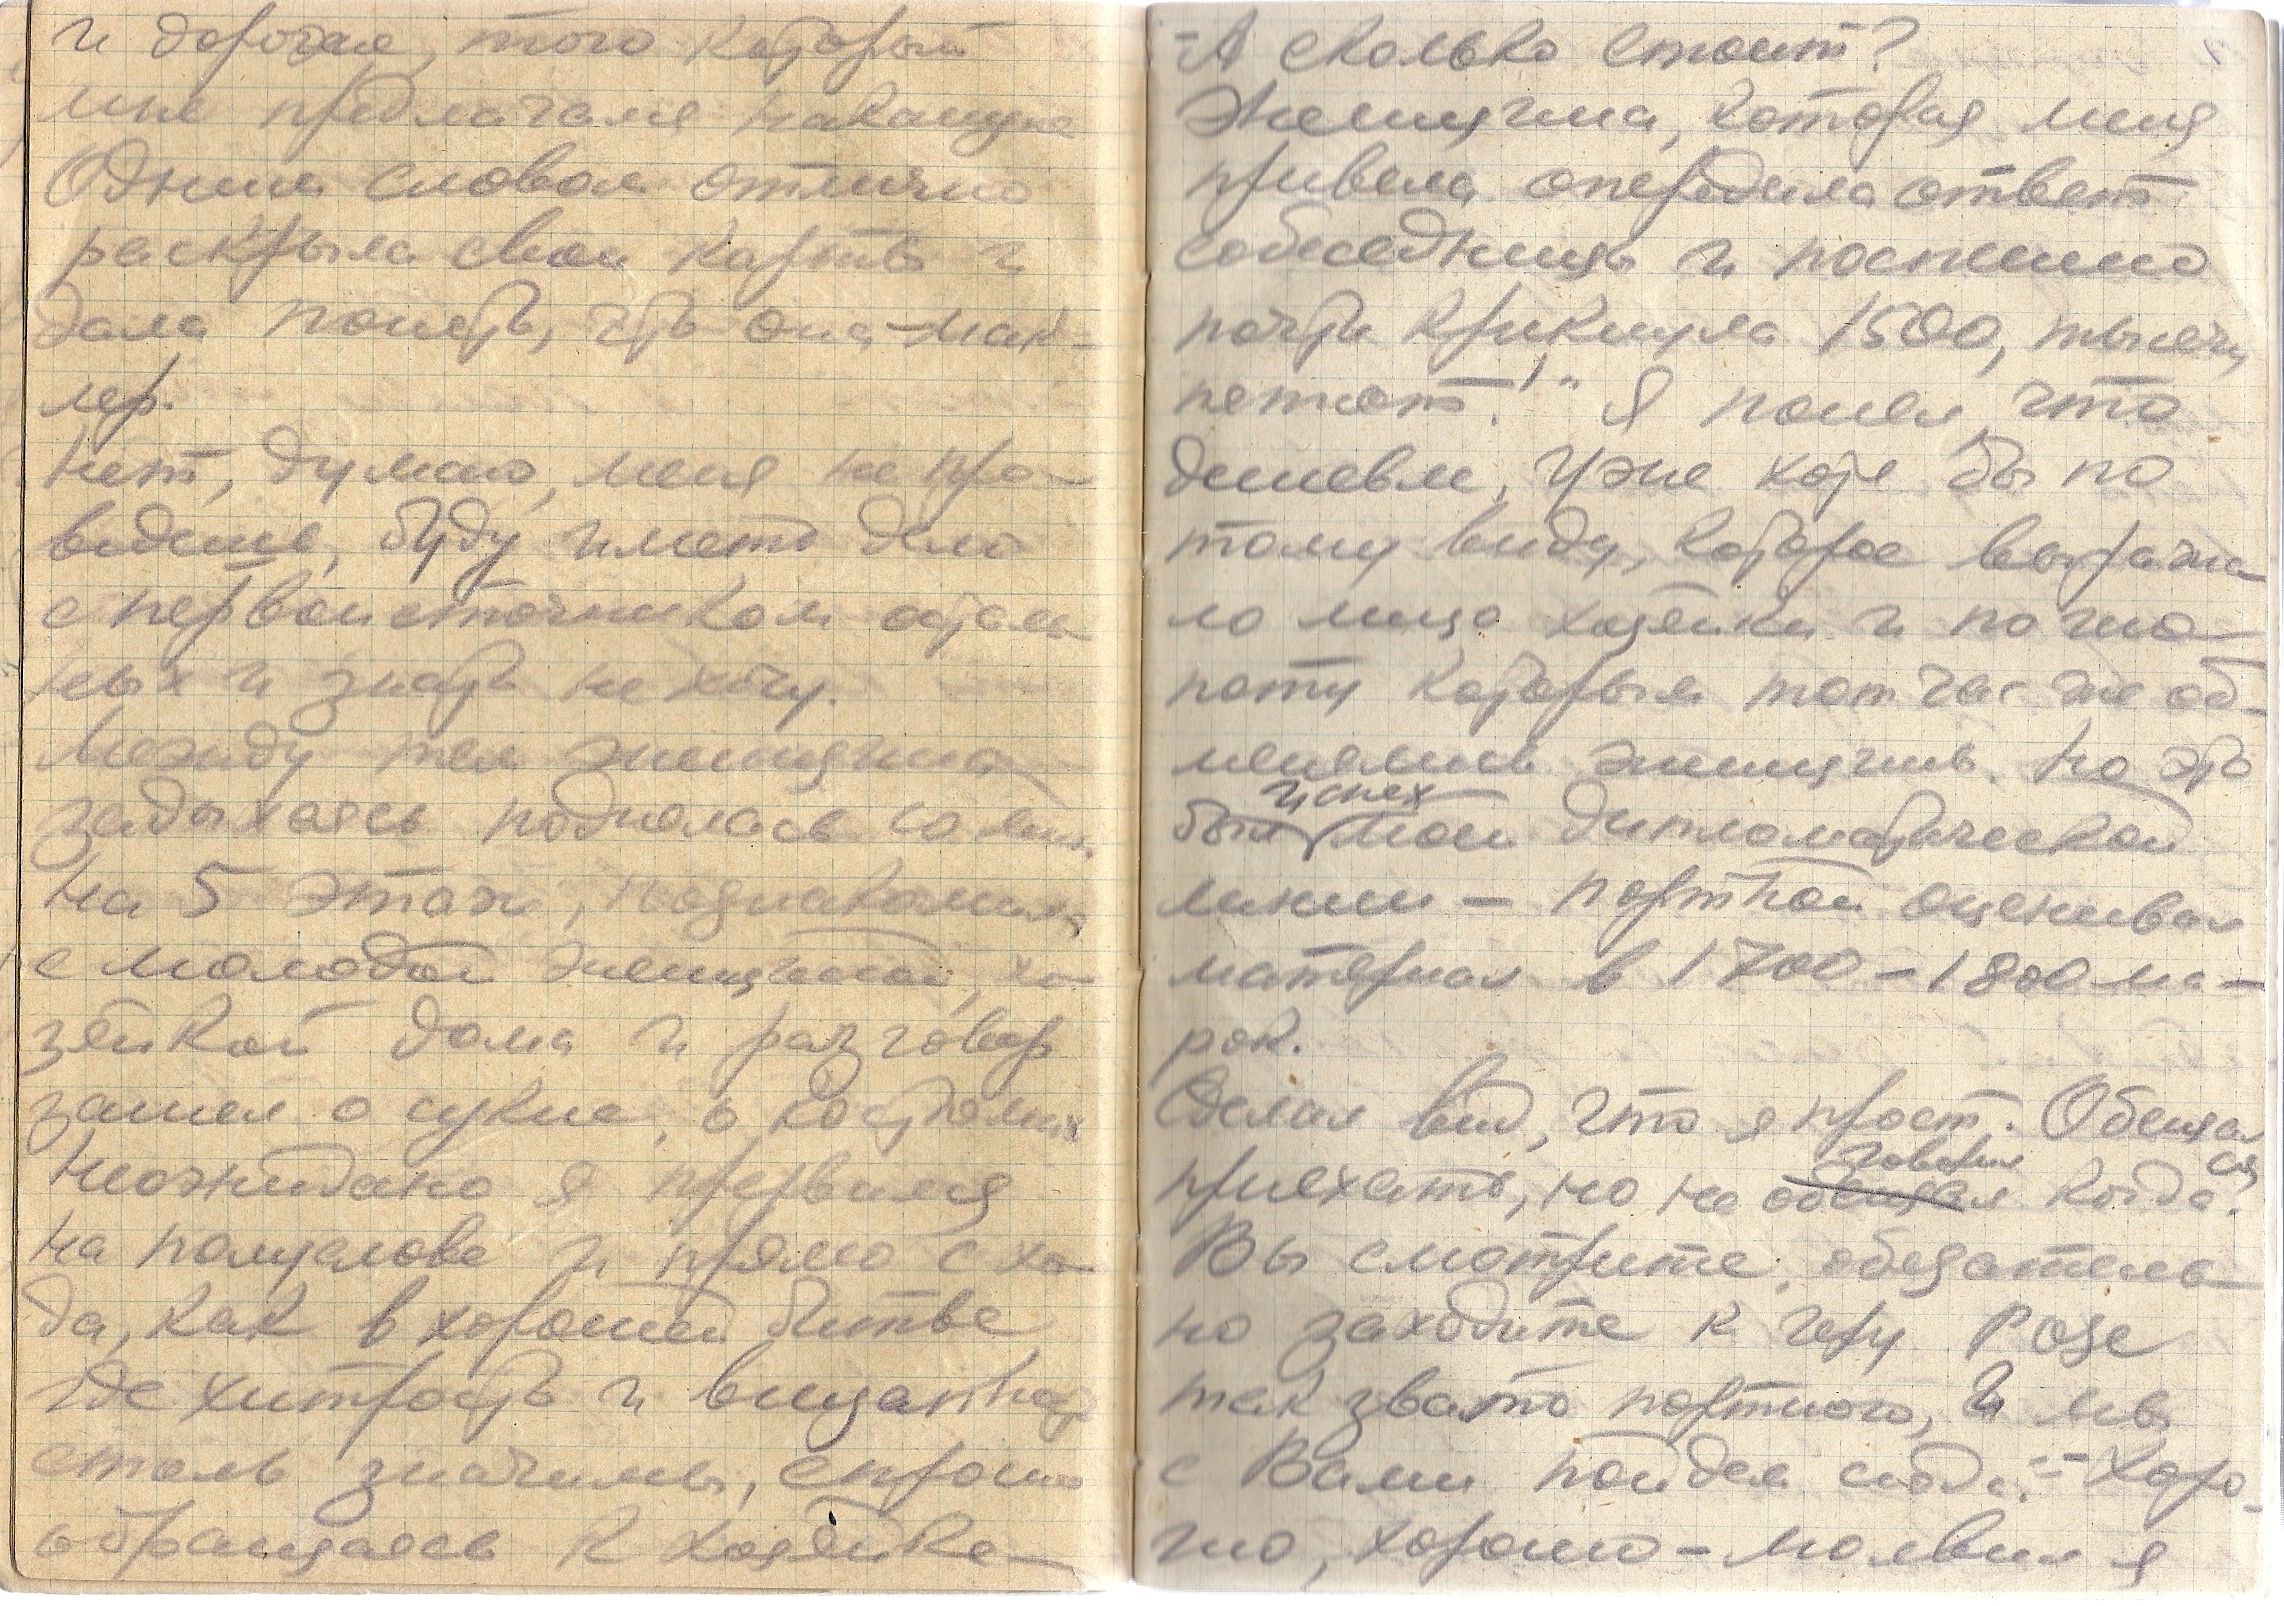 и дороже, того который
мне предлагали накануне
Одним словом отлично
раскрыла свои карты и
дала понять, что она-мак-
лер.
Нет, думаю, меня не про-
ведешь, буду иметь дело
с первоисточником осталь
ных и знать не хочу.
Между тем женщина
задыхаясь поднялась со мной
на 5 этаж, познакомила
с молодой женщиной, хо-
зяйкой дома и разговор
зашел о сукне, о костюмах
Неожидано я прервался
на полуслове и прямо с хо-
да, как в хорошей битве
где хитрость и внезапность
столь значимы, спросил
обращаясь к хозяйке-
-А сколько стоит?
Женщина, которая меня
привела опередила ответ
собеседницы и поспешно
почти крикнула 1500, тысячу
пятьсот!" Я понял, что
дешевле, уже хотя бы по
тому виду, которое выража
ло лицо хозяйки и по шо-
поту которым тотчас же об-
менялись женщины. Но это
был успех моей дипломатической
линии - портной оценивал
материал в 1700-1800 ма-
рок.
Сделал вид, что я прост. Обещался
приехать, но не обещал говорил когда.
Вы смотрите, обязатель-
но заходите к геру Розе
так звать портного, и мы
с Вами пойдем сюда. - Хоро-
шо, хорошо - молвил я